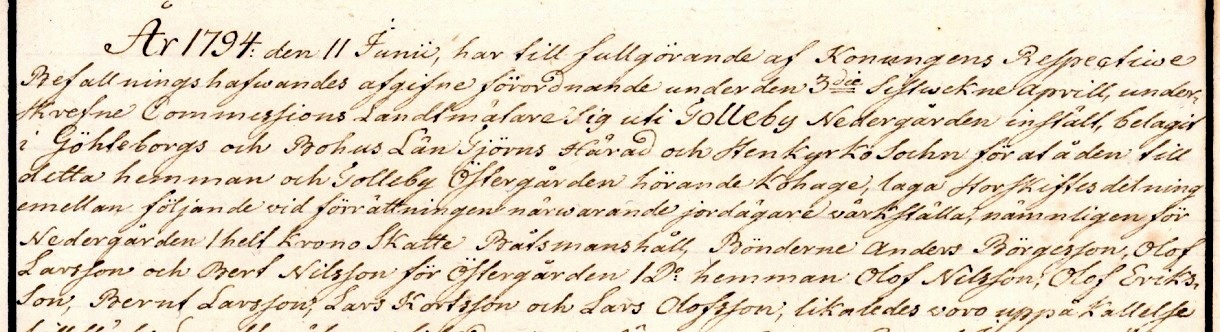 År 1794. den 11 Junii, har till fullgörande af Konungens Respective
Befallningshafwandes afgifne förordnande under den 3die Sistwekne Aprill, under-
skrefne Commissions Landtmätare Sig uti Tolleby Nedergården instält, belägit
i Götheborgs och Bohus Län Tjörns Härad och Stenkyrko Sochn för at å den till
detta hemman och Tolleby Östergården hörande Kohage, laga Storskiftesdelning
emellan följande vid förrättningen närwarande jordägare wärkställa, nämnligen för
Nedergården 1 helt Krono Skatte Båtsmanshåll Bönderne Anders Börgesson, Olof
Larsson och Bert Nilsson för Östergården 1 Do hemman Olof Nilsson, Olof Eriks-
son, Bernt Larsson, Lars Kortsson och Lars Olofsson, likaledes woro uppå Kallelse